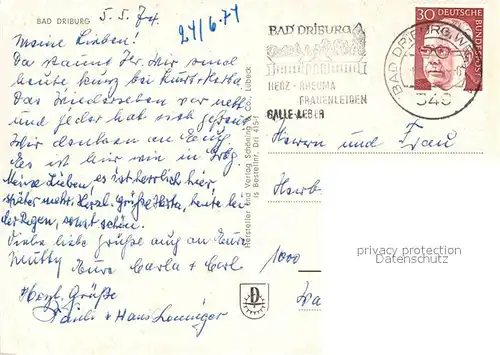 BAD DRIBURG
5.5.74
24/6.74
Meine Lieben!
Da staunt Ihr. Wir sind
heute kurz bei Kurt + Herta.
Das Wiedersehen war nett
und jeder hat sich gefreut
Wir denken an Euch
es ist hier wie in
Meine Lieben, es ist herrlich hier,
später mehr. Herzl. Grüße Herta, heute
der Regen, sonst schön.
Viele liebe Grüße auch an Eure
Mutty Eure Carla + Carl
Herzl. Grüße
+ Hans
Hersteller und Verlag Schöning & Co., Lübeck
Bestellnr. Dri 415-f
BAD DRIBURG
HERZ-RHEUMA
FRAUENLEIDEN
GALLE-LEBER
BAD DRIBURG, WESTF
349
30 DEUTSCHE
BUNDESPOST
Herrn und Frau
Herb
1000
privacy protection
Datenschutz